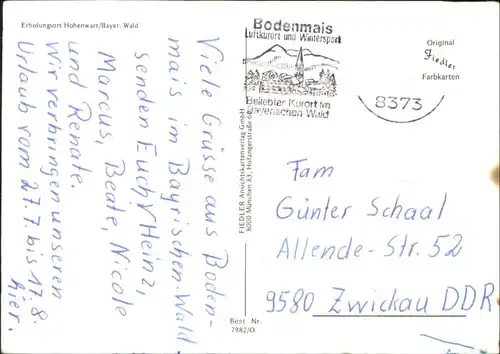 Erholungsort Hohenwart/Bayer. Wald
Viele Grüsse aus Boden-
mais im Bayrischen-Wald
senden Euch, Heinz,
Marcus, Beate, Nicole
und Renate.
Wir verbringen unseren
Urlaub vom 27.7. bis 17.8.
hier.
FIEDLER Ansichtskartenverlag GmbH
8000 München 83,
Best Nr.
7982/O
Bodenmais
Luftkurort und Wintersport
Beliebter Kurort im
Bayerischen Wald
8373
Original
Fiedler
Farbkarten
Fam
Günter Schaal
Allende-Str. 52
9580 Zwickau DDR